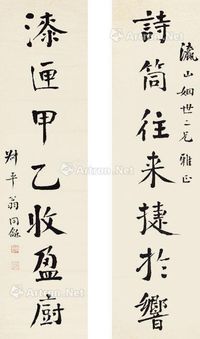 詩筒往来捷於響
瀛山姻世二兄雅正
漆匣甲乙收盈廚
翁同龢